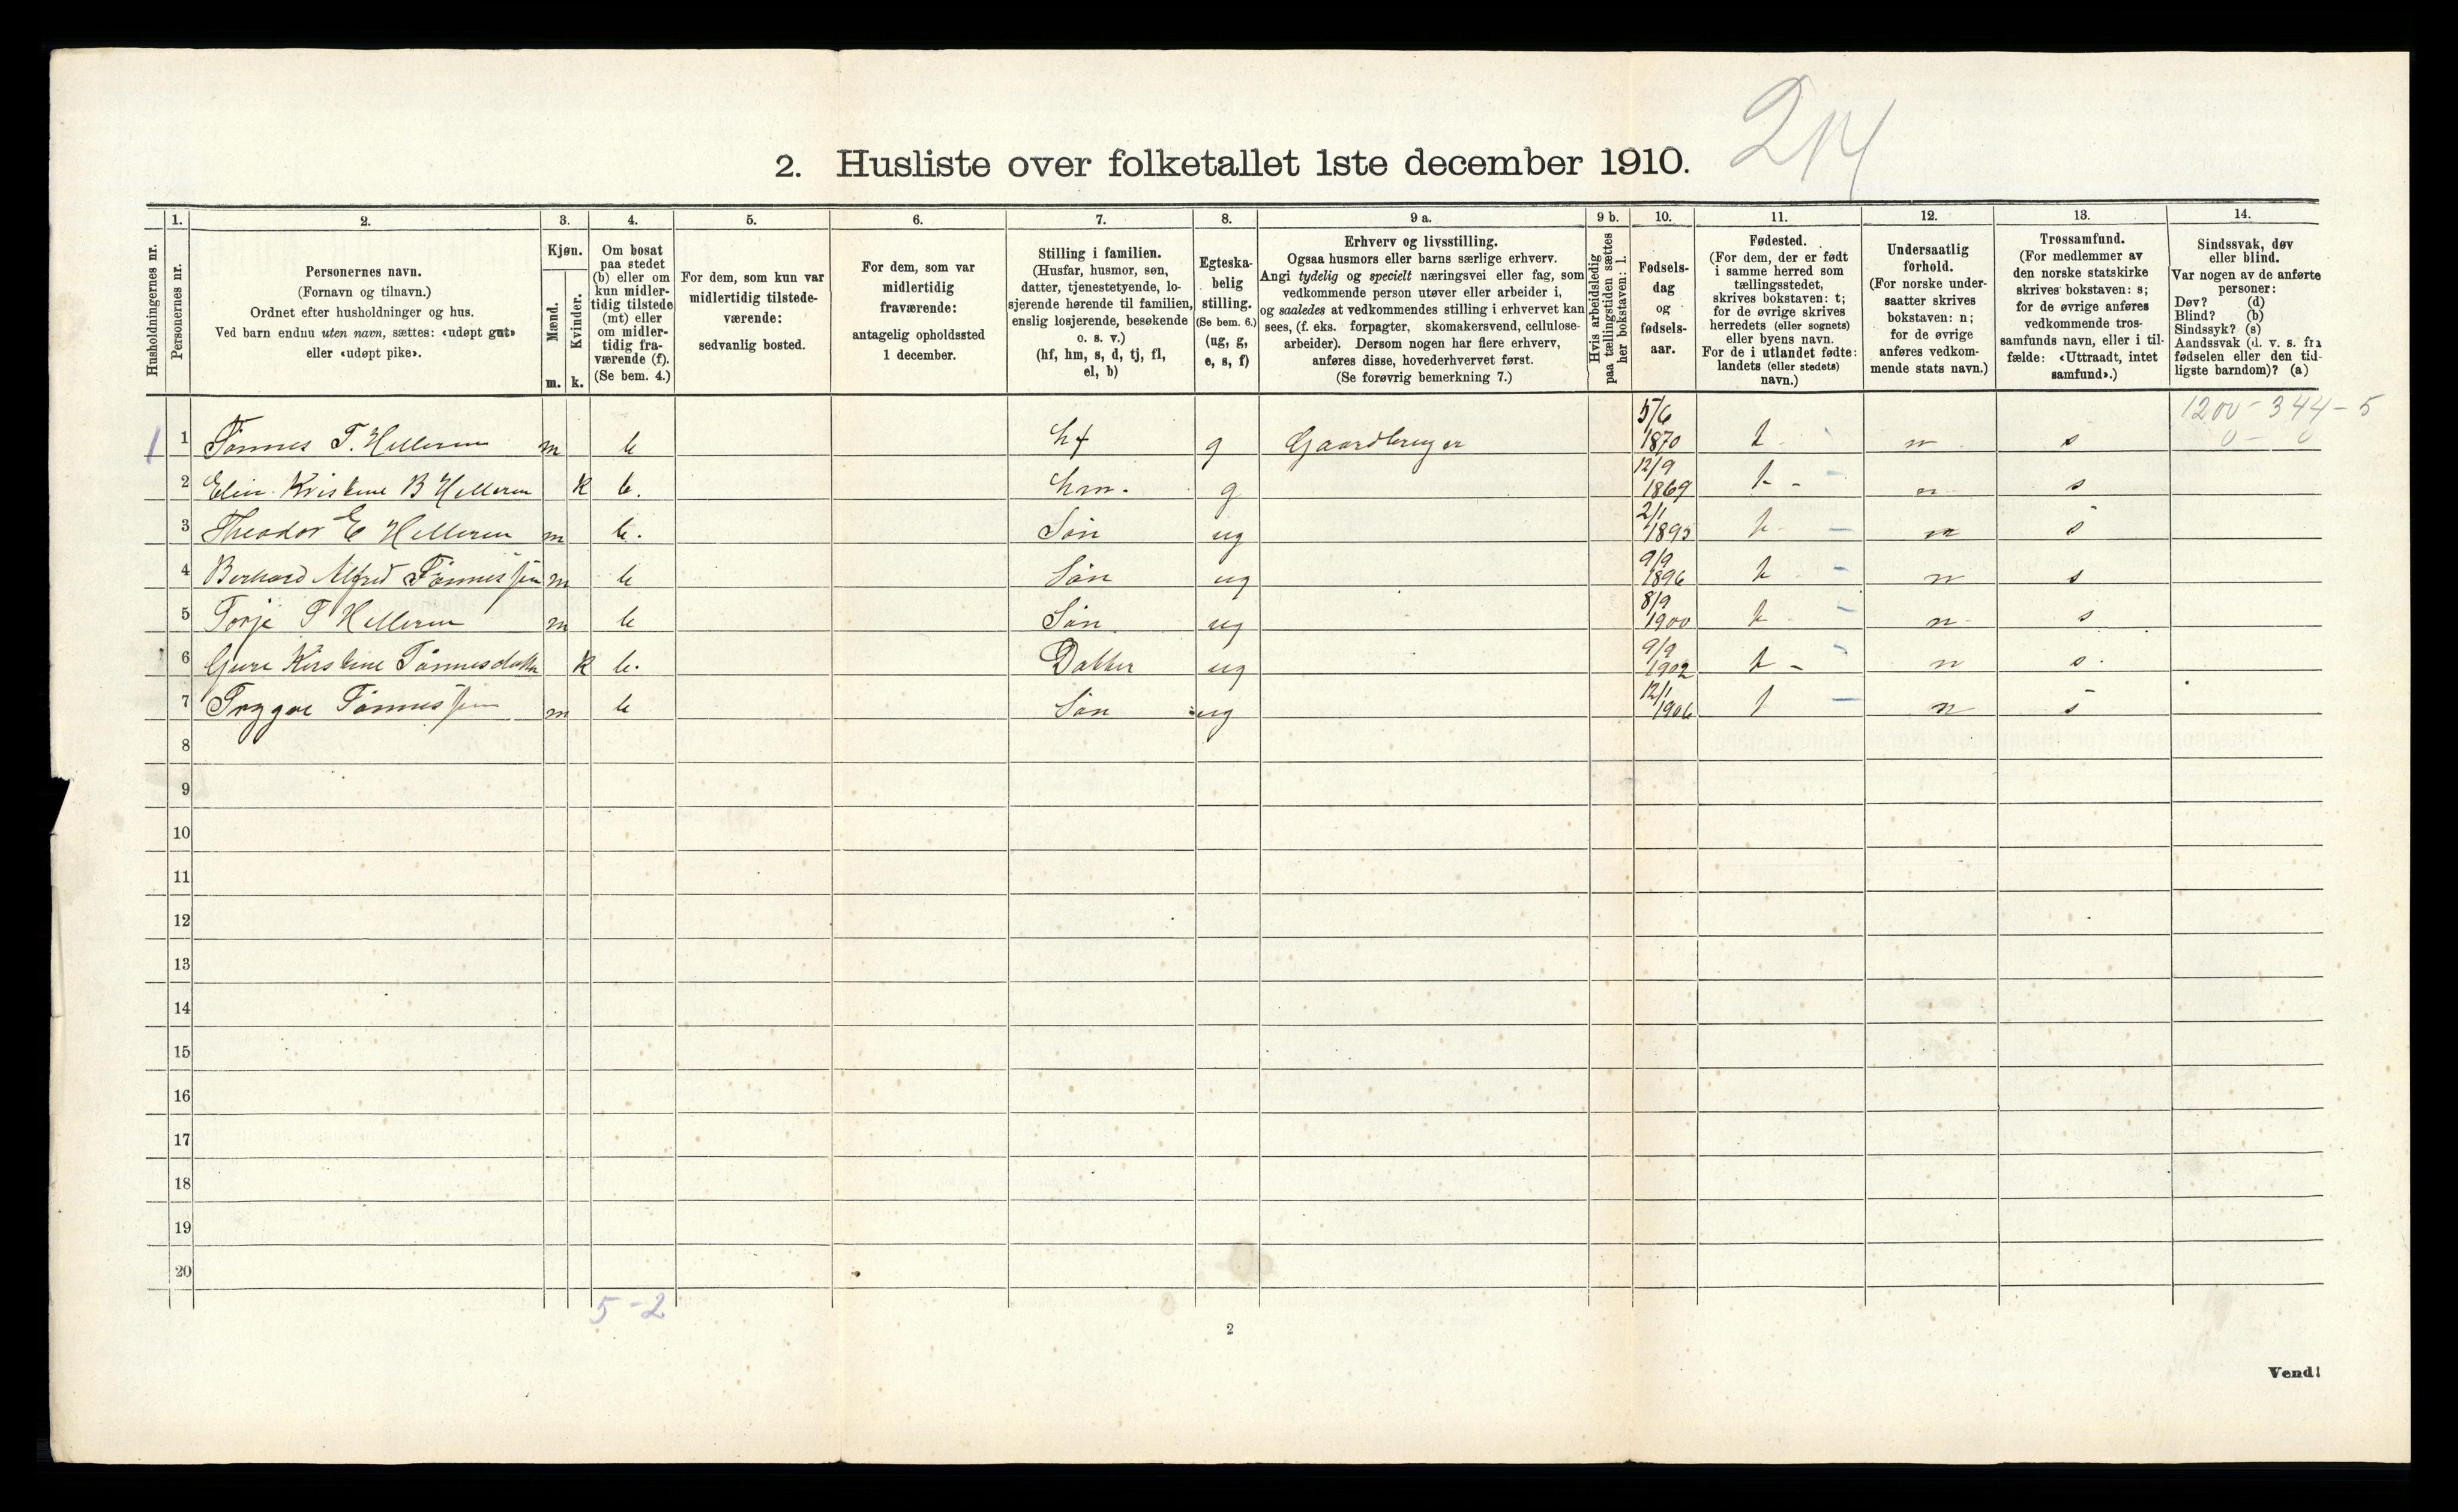 214
2. Husliste over folketallet 1ste december 1910.
Husholdningernes nr.
1.
Personernes nr.
2.
Personernes navn.
(Fornavn og tilnavn.)
Ordnet efter husholdninger og hus.
Ved barn endnu uten navn, sættes: «udøpt gut»
eller «udøpt pike».
3.
Kjøn.
Mænd.
Kvinder.
m. k.
4.
Om bosat
paa stedet
(b) eller om
kun midler-
tidig tilstede
(mt) eller
om midler-
tidig fra-
værende (f).
(Se bem. 4.)
5.
For dem, som kun var
midlertidig tilstede-
værende:
sedvanlig bosted.
6.
For dem, som var
midlertidig
fraværende:
antagelig opholdssted
1 december.
7.
Stilling i familien.
(Husfar, husmor, søn,
datter, tjenestetyende, lo-
sjerende hørende til familien,
enslig losjerende, besøkende
o. s. v.)
(hf, hm, s, d, tj, fl,
el, b)
8.
Egteska-
belig
stilling.
(Se bem. 6.)
(ug, g,
e, s, f)
9 a.
Erhverv og livsstilling.
Ogsaa husmors eller barns særlige erhverv.
Angi tydelig og specielt næringsvei eller fag, som
vedkommende person utøver eller arbeider i,
og saaledes at vedkommendes stilling i erhvervet kan
sees, (f. eks. forpagter, skomakersvend, cellulose-
arbeider). Dersom nogen har flere erhverv,
anføres disse, hovederhvervet først.
(Se forøvrig bemerkning 7.)
9 b.
Hvis arbeidsledig
paa tællingstiden sættes
her bokstaven: l.
10.
Fødsels-
dag
og
fødsels-
aar.
11.
Fødested.
(For dem, der er født
i samme herred som
tællingsstedet,
skrives bokstaven: t;
for de øvrige skrives
herredets (eller sognets)
eller byens navn.
For de i utlandet fødte:
landets (eller stedets)
navn.)
12.
Undersaatlig
forhold.
(For norske under-
saatter skrives
bokstaven: n;
for de øvrige
anføres vedkom-
mende stats navn.)
13.
Trossamfund.
(For medlemmer av
den norske statskirke
skrives bokstaven: s;
for de øvrige anføres
vedkommende tros-
samfunds navn, eller i til-
fælde: «Uttraadt, intet
samfund».)
14.
Sindssvak, døv
eller blind.
Var nogen av de anførte
personer:
Døv? (d)
Blind? (b)
Sindssyk? (s)
Aandssvak (d. v. s. fra
fødselen eller den tid-
ligste barndom)? (a)
1200 - 344 - 5
0 - 0
1 1 Tønnes T. Helleren m b hf g Gaardbruger 5/6 1870 t n s
2 Elin Kristine B Helleren k b. hm. g 12/9 1869 t - n s
3 Theodor E Helleren m b. Søn ug 2/1 1895 t n s
4 Berhard Alfred Tønnessen m b Søn ug 9/9 1896 t n s
5 Torje T Helleren m b Søn ug 8/9 1900 t n s
6 Gure Kirstine Tønnesdatter k b. Datter ug 9/9 1902 t - n s.
7 Trygve Tønnessen m b Søn ug 12/1 1906 t n s
8
9
10
11
12
13
14
15
16
17
18
19
20
5 - 2
2
Vend!